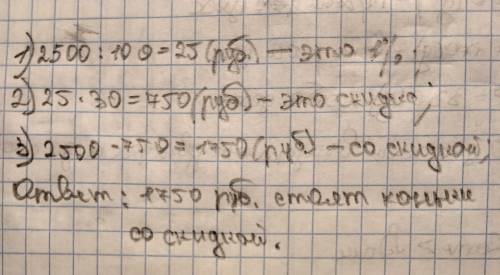 1) 2500 : 100 = 25 (руб.) – это 1%;
2) 25 · 30 = 750 (руб) – это скидка;
3) 2500 - 750 = 1750 (руб) – со скидкой;
Ответ: 1750 руб. стоят коньки
со скидкой.